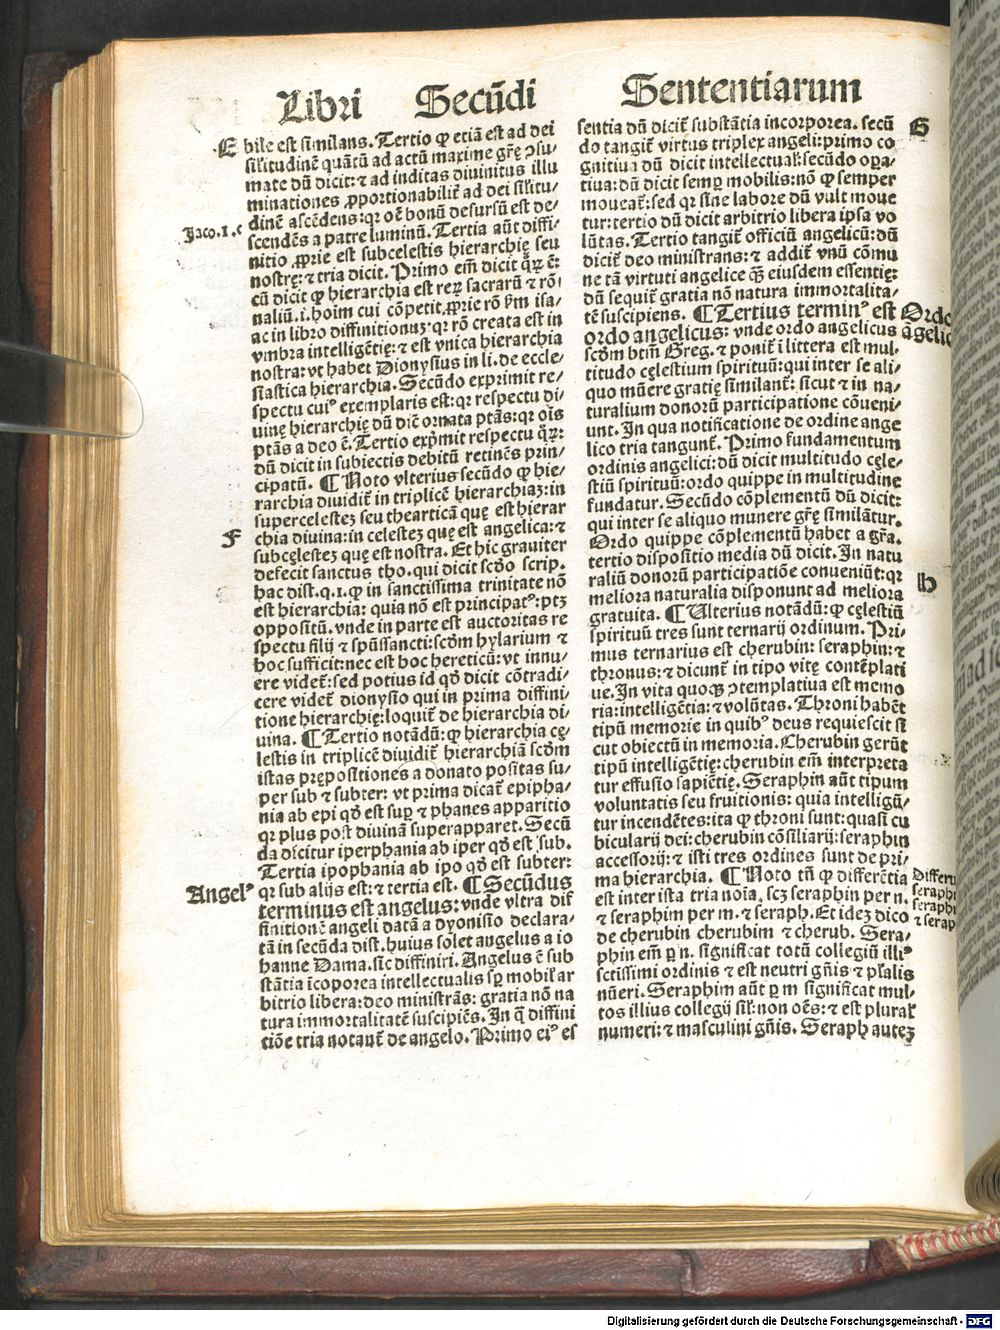 Libri Secūdi Sententiarum
E
bile est similans. Tertio ꝙ etiā est ad dei
silitudinē quātū ad actū maxime grē ↄsu⸗
mate dū dicit: ⁊ ad inditas diuinitus illu
minationes ꝓportionabilit̄ ad dei silitu⸗
dinē ascēdens: qr oē bonū desursū est de⸗
Jaco.1.c
scendēs a patre luminū. Tertia aūt diffi⸗
nitio ꝓprie est subcelestis hierarchię seu
nostrę: ⁊ tria dicit. Primo em̄ dicit
cū dicit ꝙ hierarchia est rerꝝ sacrarū ⁊ rō
naliū .i. hoim cui cōpetit ꝓprie rō ſm isa⸗
ac in libro diffinitionuꝫ: qr rō creata est in
vmbra intelligētię: ⁊ est vnica hierarchia
nostra: vt habet Dionysius in li. de eccle⸗
siastica hierarchia. Secūdo exprimit re⸗
spectu cuiꝰ exemplaris est: qr respectu di⸗
uinę hierarchię dū dic̄ ornata ptās: qr oīs
ptās a deo ē. Tertio exp̄mit respectu
dū dicit in subiectis debitū retinēs prin⸗
cipatū. ¶ Noto vlterius secūdo ꝙ hie⸗
rarchia diuidit̄ in triplicē hierarchiaꝫ: in
supercelesteꝫ seu thearticā quę est hierar
F
chia diuina: in celesteꝫ quę est angelica: ⁊
subcęlesteꝫ quę est nostra. Et hic grauiter
defecit sanctus tho. qui dicit scdo scrip.
hac dist. q. 1. ꝙ in sanctissima trinitate nō
est hierarchia: quia nō est principatꝰ: ptꝫ
oppositū. vnde in parte est auctoritas re
spectu filij ⁊ spūssancti: scdm hylarium ⁊
hoc sufficit: nec est hoc hereticū: vt innu⸗
ere videt̄: sed potius id qd̄ dicit cōtradi⸗
cere videt̄ dionysio qui in prima diffini⸗
tione hierarchię: loquit̄ de hierarchia di⸗
uina. ¶ Tertio notādū: ꝙ hierarchia cę⸗
lestis in triplicē diuidit̄ hierarchiā scdm
istas prępositiones a donato positas su⸗
per sub ⁊ subter: vt prima dicat̄ epipha⸗
nia ab epi qd̄ est suꝑ ⁊ phanes apparitio
qr plus post diuinā superapparet. Secū
da dicitur iperphania ab iper qd̄ est sub.
Tertia ipophania ab ipo qd̄ est subter:
Angelꝰ
qr sub alijs est: ⁊ tertia est. ¶ Secūdus
terminus est angelus: vnde vltra dif
finitionē angeli datā a dyonisio declara⸗
tā in secūda dist. huius solet angelus a io
hanne Dama. sic diffiniri. Angelus ē sub
stātia īcoporea intellectualis sꝑ mobil̄ ar
bitrio libera: deo ministrās: gratia nō na
tura immortalitatē suscipiēs. In q̄ diffini
tiōe tria notant̄ de angelo. Primo eiꝰ es
sentia dū dicit̄ substātia incorporea. secū
G
do tangit̄ virtus triplex angeli: primo co
gnitiua dū dicit intellectual̄: secūdo oꝑa⸗
tiua: dū dicit semꝑ mobilis: nō ꝙ semper
moueat̄: sed qr sine labore dū vult moue
tur: tertio dū dicit arbitrio libera ipsa vo
lūtas. Tertio tangit̄ officiū angelicū: dū
dicit̄ deo ministrans: ⁊ addit̄ vnū cōmu
ne tā virtuti angelice q̄ꝫ eiusdem essentię:
dū sequit̄ gratia nō natura immortalita⸗
tē suscipiens. ¶ Tertius terminꝰ est
Ordo
āgelic
ordo angelicus: vnde ordo angelicus
scdm btm̄ Greg. ⁊ ponit̄ ī littera est mul⸗
titudo cęlestium spirituū: qui inter se ali⸗
quo mūere gratię similant̄: sicut ⁊ in na⸗
turalium donorū participatione cōueni⸗
unt. In qua notificatione de ordine ange
lico tria tangunt̄. Primo fundamentum
ordinis angelici: dū dicit multitudo cęle⸗
stiū spirituū: ordo quippe in multitudine
fundatur. Secūdo cōplementū dū dicit:
qui inter se aliquo munere grē similātur.
Ordo quippe cōplementū habet a gra.
tertio dispositio media dū dicit. In natu
raliū donorū participatiōe conueniūt: qr
h
meliora naturalia disponunt ad meliora
gratuita. ¶ Ulterius notādū: ꝙ cęlestiū
spirituū tres sunt ternarij ordinum. Pri⸗
mus ternarius est cherubin: seraphin: ⁊
thronus: ⁊ dicunt̄ in tipo vitę contēplati
ue. In vita quoqꝫ ↄtemplatiua est memo
ria: intelligētia: ⁊ volūtas. Throni habēt
tipū memorie in quibꝰ deus requiescit si
cut obiectū in memoria. Cherubin gerūt
tipū intelligētię: cherubin em̄ interpreta
tur effusio sapiētię. Seraphin aūt tipum
voluntatis seu fruitionis: quia intelligū⸗
tur incendētes: ita ꝙ throni sunt: quasi cu
bicularij dei: cherubin cōsiliarij: seraphin
accessorij: ⁊ isti tres ordines sunt de pri⸗
ma hierarchia. ¶ Noto tn̄ ꝙ differētia
Differū
seraphi
seraphi
⁊ serap
est inter ista tria noīa, scꝫ seraphin per n.
⁊ seraphim per m. ⁊ seraph. Et ideꝫ dico
de cherubin cherubim ⁊ cherub. Sera⸗
phin em̄ ꝑ n. significat totū collegiū illiꝰ
sctissimi ordinis ⁊ est neutri gn̄is ⁊ pl̄alis
nūeri. Seraphim aūt ꝑ m significat mul⸗
tos illius collegij sil̄: non oēs: ⁊ est plural̄
numeri: ⁊ masculini gn̄is. Seraph auteꝫ
Digitalisierung gefördert durch die Deutsche Forschungsgemeinschaft - DFG